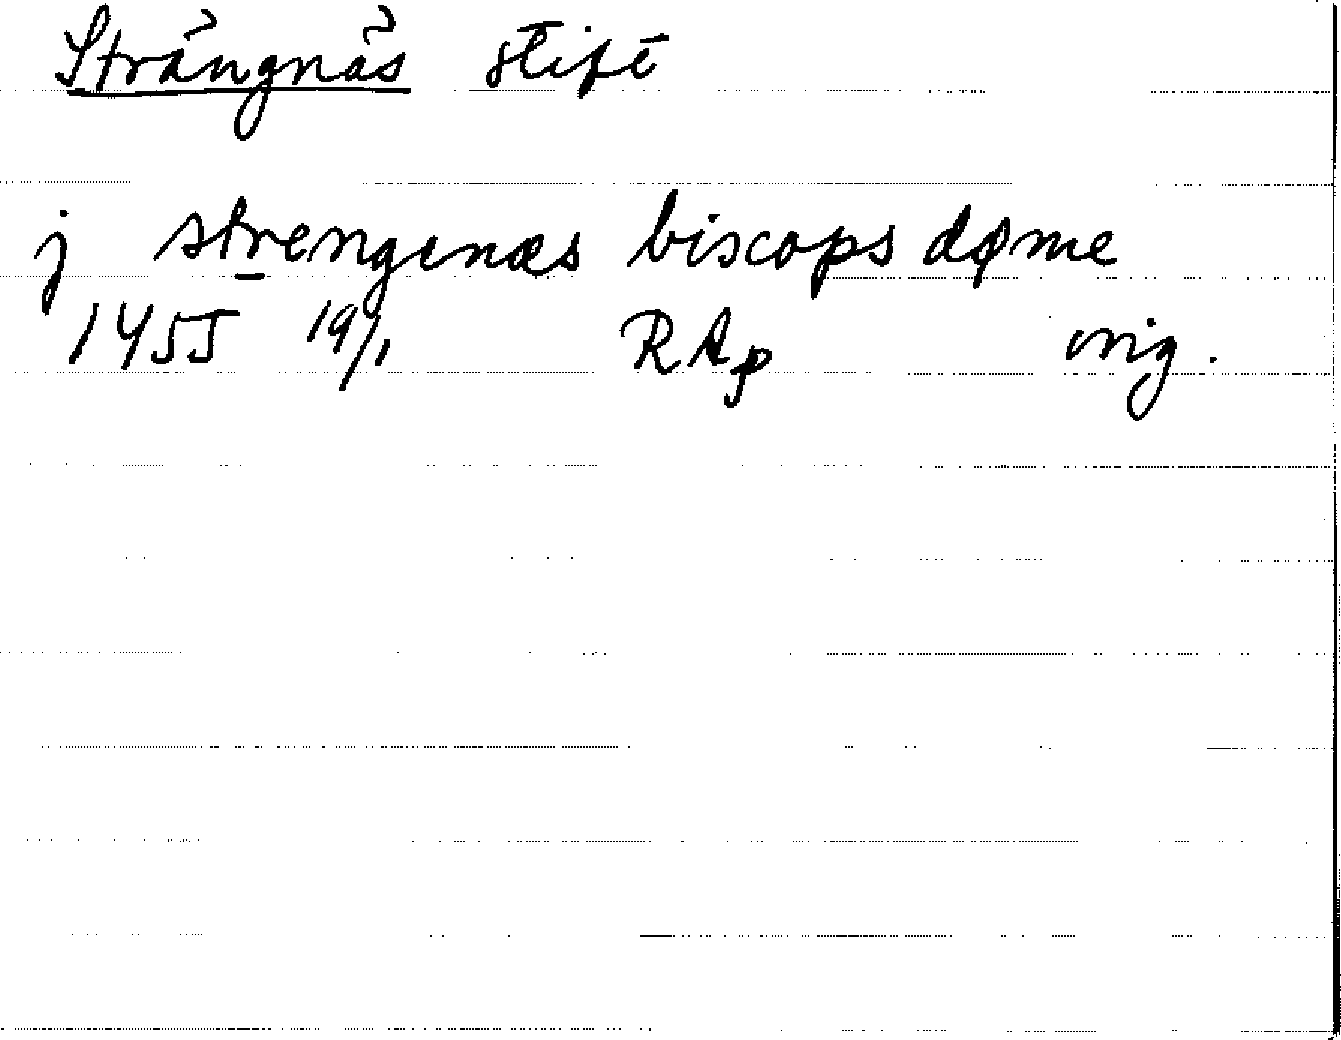 Strängnäs stift
j strengenæs biscops døme
1455 19/1 RAp orig.